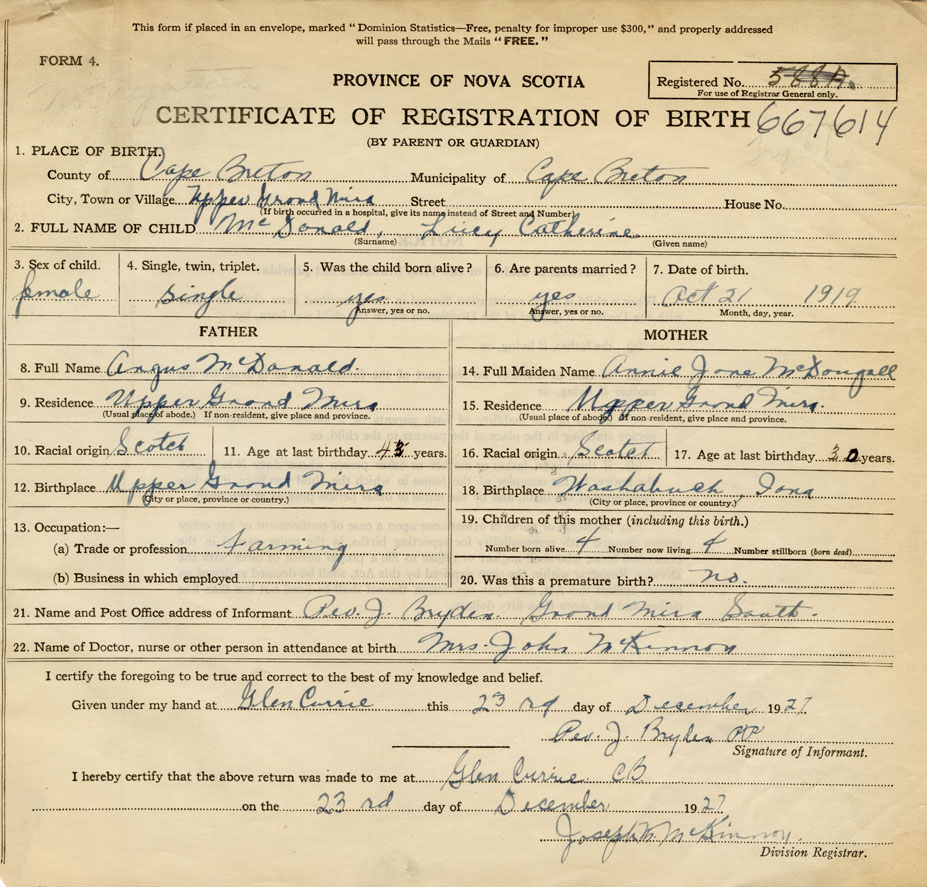 This form if placed in an envelope, marked "Dominion Statistics—Free, penalty for improper use $300," and properly addressed
will pass through the Mails "FREE."
FORM 4.
PROVINCE OF NOVA SCOTIA
Registered No. 588A.
For use of Registrar General only.
CERTIFICATE OF REGISTRATION OF BIRTH 667614
(BY PARENT OR GUARDIAN)
1. PLACE OF BIRTH.
County of Cape Breton Municipality of Cape Breton
City, Town or Village Upper Grand Mira Street House No.
(If birth occurred in a hospital, give its name instead of Street and Number)
2. FULL NAME OF CHILD McDonald, Lucy Catherine
(Surname) (Given name)
3. Sex of child. 4. Single, twin, triplet. 5. Was the child born alive? 6. Are parents married? 7. Date of birth.
female single yes yes Oct 21 1919
Answer, yes or no. Answer, yes or no. Month, day, year.
FATHER MOTHER
8. Full Name Angus McDonald. 14. Full Maiden Name Annie Jane McDougall
9. Residence Upper Grand Mira 15. Residence Upper Grand Mira.
(Usual place of abode.) If non-resident, give place and province. (Usual place of abode.) If non-resident, give place and province.
10. Racial origin Scotch 11. Age at last birthday 43 years. 16. Racial origin Scotch 17. Age at last birthday 30 years.
12. Birthplace Upper Grand Mira 18. Birthplace Washabuck, Iona
(City or place, province or country.) (City or place, province or country.)
13. Occupation:— 19. Children of this mother (including this birth.)
(a) Trade or profession Farming Number born alive 4 Number now living 4 Number stillborn (born dead)
(b) Business in which employed 20. Was this a premature birth? no.
21. Name and Post Office address of Informant Peo. J. Bryden. Grand Mira South.
22. Name of Doctor, nurse or other person in attendance at birth Mrs. John McKinnon
I certify the foregoing to be true and correct to the best of my knowledge and belief.
Given under my hand at Glen Currie this 23 rd day of December 1927
Peo. J. Bryden
Signature of Informant.
I hereby certify that the above return was made to me at Glen Currie CB
on the 23 rd day of December 1927
Joseph M. McKinnon.
Division Registrar.